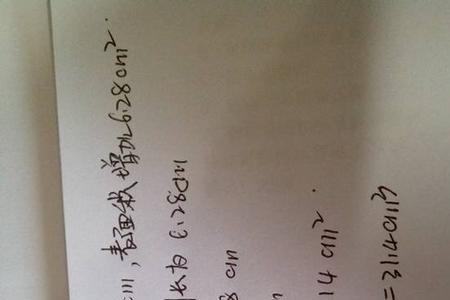 cm,表面积增加6.28cm².
长为6.28cm
8cm
14cm².
=31.4cm³